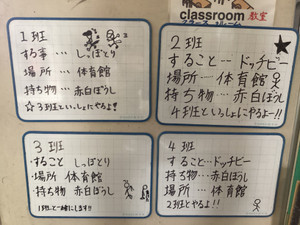 classroom 教室
1班
する事…しっぽとり
場所…体育館
持ち物…赤白ぼうし
☆3班といっしょにやるよ!
2班
すること…ドッチビー
場所…体育館
持ち物…赤白ぼうし
4班といっしょにやるよー!!
3班
すること しっぽとり
場所 体育館
持ち物 赤白ぼうし
1班と一緒にします!!
4班
すること…ドッチビー
持ち物…赤白ぼうし
場所…体育館
2班とやるよ!!